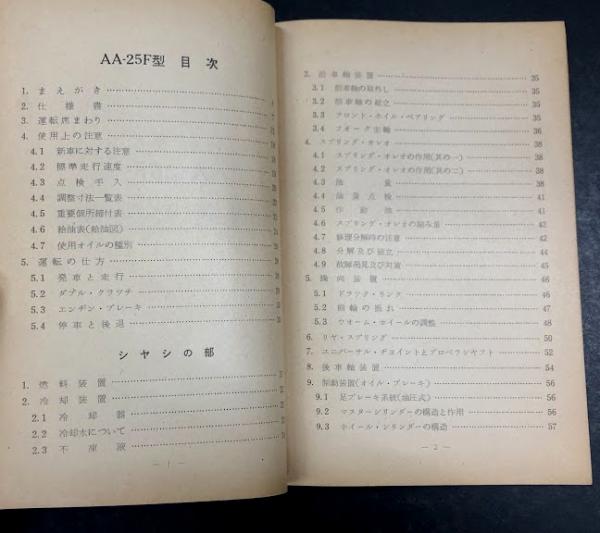 AA-25F型 目次
1. まえがき
2. 仕様書
3. 運転席まわり
4. 使用上の注意
4.1 新車に対する注意
4.2 標準走行速度
4.3 点検手入
4.4 調整寸法一覧表
4.5 重要個所締付表
4.6 給油表(給油図)
4.7 使用オイルの種別
5. 運転の仕方
5.1 発車と走行
5.2 ダブル・クラツチ
5.3 エンヂン・ブレーキ
5.4 停車と後退
シヤシの部
1. 燃料装置
2. 冷却装置
2.1 冷却器
2.2 冷却水について
2.3 不凍液
— 1 —
3. 前車軸装置 35
3.1 前車軸の取外し 35
3.2 前車軸の組立 35
3.3 フロント・ホイル・ベアリング 35
3.4 フオーク主軸 36
4. スプリング・オレオ 38
4.1 スプリング・オレオの作用(其の一) 38
4.2 スプリング・オレオの作用(其の二) 38
4.3 油量 38
4.4 油量点検 41
4.5 作動油 41
4.6 スプリング・オレオの縮み量 42
4.7 修理分解時の注意 42
4.8 分解及び組立 44
4.9 故障発見及び対策 45
5. 操向装置 46
5.1 ドラツク・リンク 46
5.2 前輪の振れ 46
5.3 ウオーム・ホイールの調整 48
6. リヤ・スプリング 50
7. ユニバーサル・ヂヨイントとプロペラシヤフト 52
8. 後車軸装置 54
9. 制動装置(オイル・ブレーキ) 56
9.1 足ブレーキ系統(油圧式) 56
9.2 マスターシリンダーの構造と作用 56
9.3 ホイール・シリンダーの構造 57
— 2 —